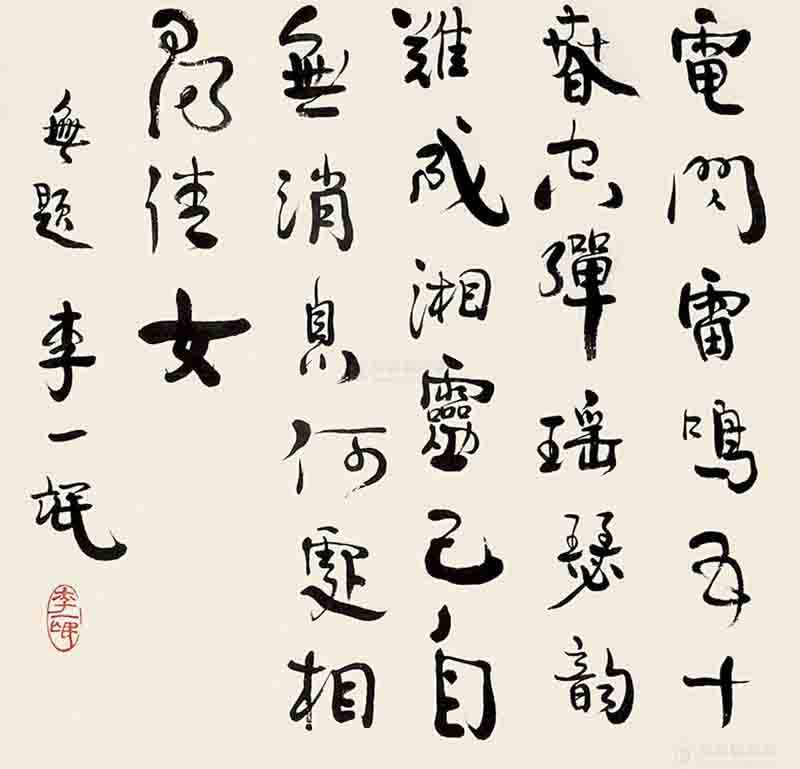 電閃雷鳴五十
春空彈瑤瑟韻
難成湘靈已自
無消息何處相
尋倩女
無題 李一氓